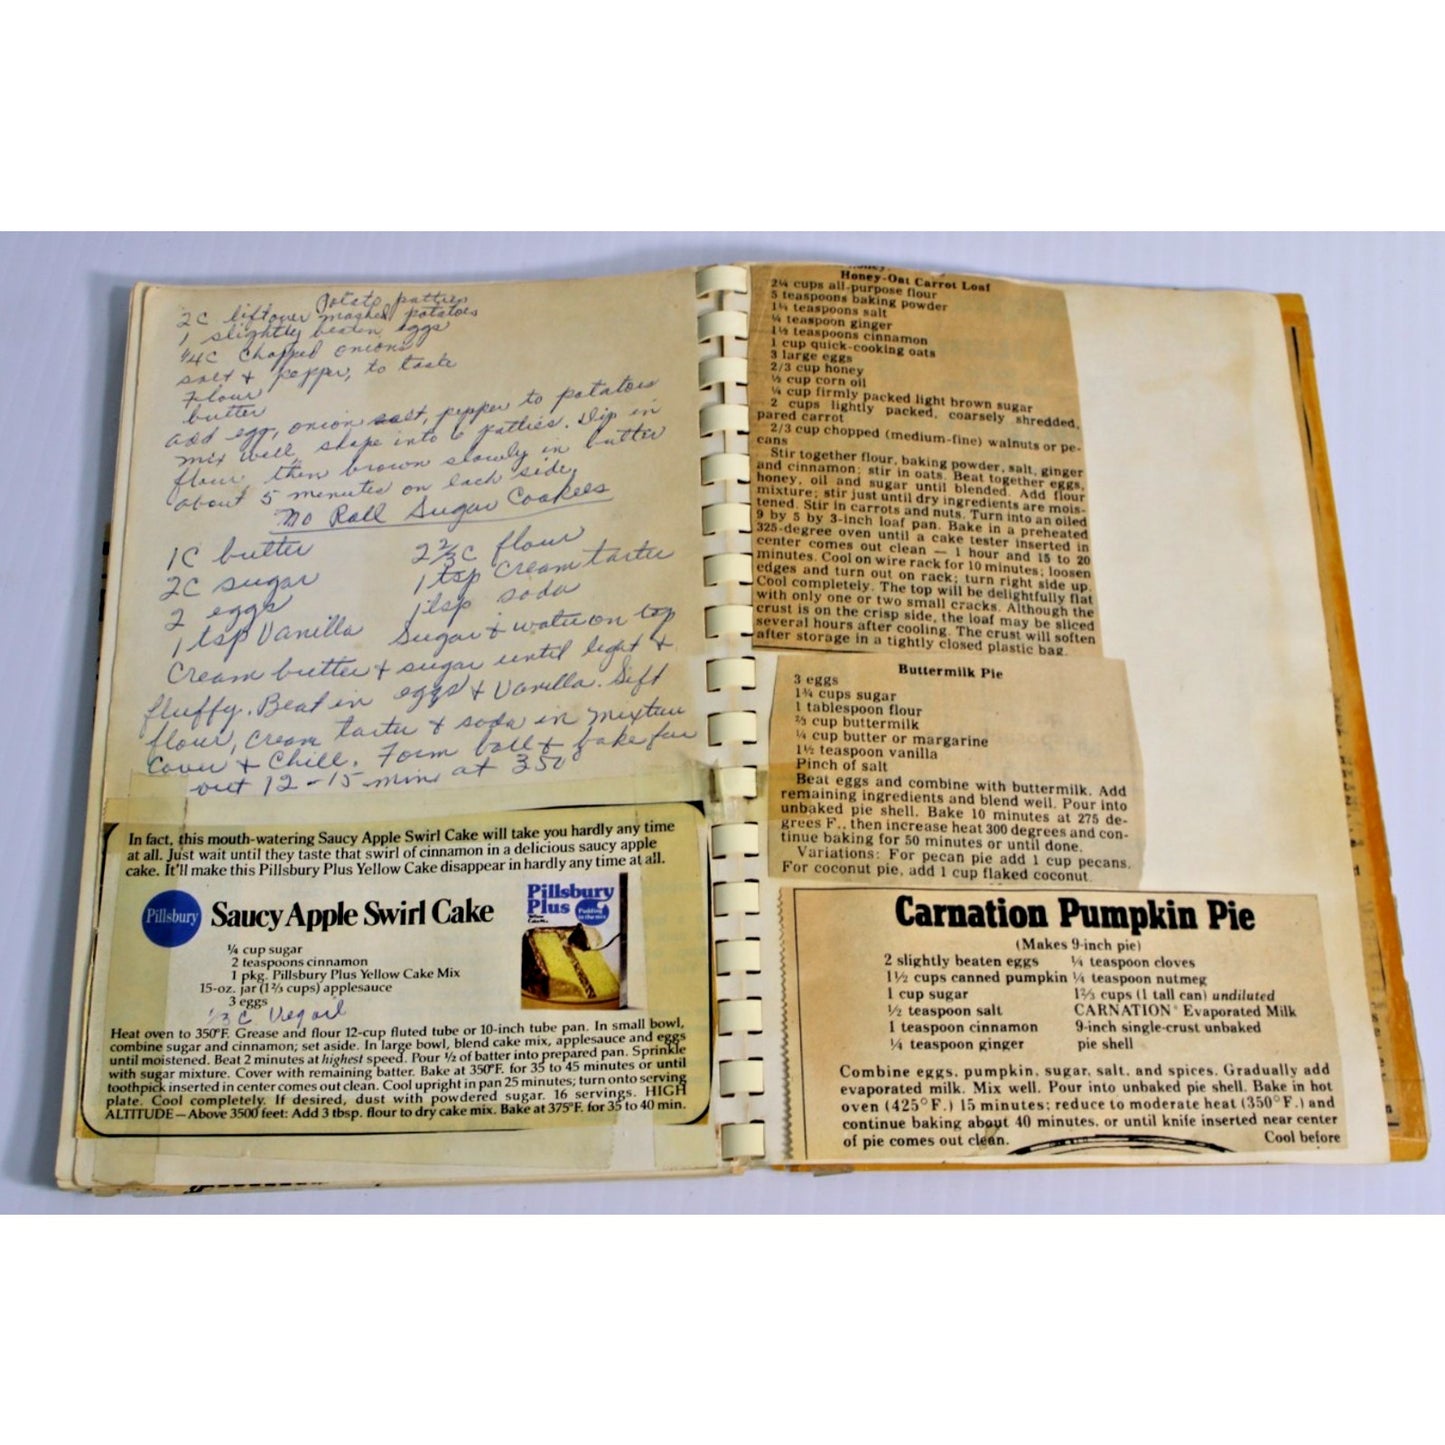 Potato patties
2C leftover mashed potatoes
1 slightly beaten eggs
1/4C Chopped onions
salt + pepper, to taste
Flour
butter
add egg, onion salt, pepper to potatoes
mix well, shape into 6 patties. Dip in
flour, then brown slowly in butter
about 5 minutes on each side,
No Roll Sugar Cookies
1C butter
2C sugar
2 eggs
1 tsp Vanilla
2 2/3C flour
1 tsp Cream tarter
1 tsp soda
Sugar + water on top
Cream butter + sugar until light +
fluffy. Beat in eggs + Vanilla. Sift
flour, Cream tarter + soda in mixture
Cover + Chill. Form ball + bake for
out 12-15 min at 350°
In fact, this mouth-watering Saucy Apple Swirl Cake will take you hardly any time
at all. Just wait until they taste that swirl of cinnamon in a delicious saucy apple
cake. It'll make this Pillsbury Plus Yellow Cake disappear in hardly any time at all.
Pillsbury
Saucy Apple Swirl Cake
Pillsbury
Plus
Pudding
in the mix
¼ cup sugar
2 teaspoons cinnamon
1 pkg. Pillsbury Plus Yellow Cake Mix
15-oz. jar (1⅔ cups) applesauce
3 eggs
1/3 C Veg oil
Heat oven to 350°F. Grease and flour 12-cup fluted tube or 10-inch tube pan. In small bowl,
combine sugar and cinnamon; set aside. In large bowl, blend cake mix, applesauce and eggs
until moistened. Beat 2 minutes at highest speed. Pour ½ of batter into prepared pan. Sprinkle
with sugar mixture. Cover with remaining batter. Bake at 350°F. for 35 to 45 minutes or until
toothpick inserted in center comes out clean. Cool upright in pan 25 minutes; turn onto serving
plate. Cool completely. If desired, dust with powdered sugar. 16 servings. HIGH
ALTITUDE—Above 3500 feet: Add 3 tbsp. flour to dry cake mix. Bake at 375°F. for 35 to 40 min.
Honey-Oat Carrot Loaf
2¼ cups all-purpose flour
5 teaspoons baking powder
1¼ teaspoons salt
¼ teaspoon ginger
1½ teaspoons cinnamon
1 cup quick-cooking oats
3 large eggs
2/3 cup honey
½ cup corn oil
¼ cup firmly packed light brown sugar
2 cups lightly packed, coarsely shredded,
pared carrot
2/3 cup chopped (medium-fine) walnuts or pe-
cans
Stir together flour, baking powder, salt, ginger
and cinnamon; stir in oats. Beat together eggs,
honey, oil and sugar until blended. Add flour
mixture; stir just until dry ingredients are mois-
tened. Stir in carrots and nuts. Turn into an oiled
9 by 5 by 3-inch loaf pan. Bake in a preheated
325-degree oven until a cake tester inserted in
center comes out clean — 1 hour and 15 to 20
minutes. Cool on wire rack for 10 minutes; loosen
edges and turn out on rack; turn right side up.
Cool completely. The top will be delightfully flat
with only one or two small cracks. Although the
crust is on the crisp side, the loaf may be sliced
several hours after cooling. The crust will soften
after storage in a tightly closed plastic bag.
Buttermilk Pie
3 eggs
1¾ cups sugar
1 tablespoon flour
⅔ cup buttermilk
¼ cup butter or margarine
1½ teaspoon vanilla
Pinch of salt
Beat eggs and combine with buttermilk. Add
remaining ingredients and blend well. Pour into
unbaked pie shell. Bake 10 minutes at 275 de-
grees F., then increase heat 300 degrees and con-
tinue baking for 50 minutes or until done.
Variations: For pecan pie add 1 cup pecans.
For coconut pie, add 1 cup flaked coconut
Carnation Pumpkin Pie
(Makes 9-inch pie)
2 slightly beaten eggs
1½ cups canned pumpkin
1 cup sugar
½ teaspoon salt
1 teaspoon cinnamon
¼ teaspoon ginger
¼ teaspoon cloves
¼ teaspoon nutmeg
1⅔ cups (1 tall can) undiluted
CARNATION® Evaporated Milk
9-inch single-crust unbaked
pie shell
Combine eggs, pumpkin, sugar, salt, and spices. Gradually add
evaporated milk. Mix well. Pour into unbaked pie shell. Bake in hot
oven (425°F.) 15 minutes; reduce to moderate heat (350°F.) and
continue baking about 40 minutes, or until knife inserted near center
of pie comes out clean. Cool before